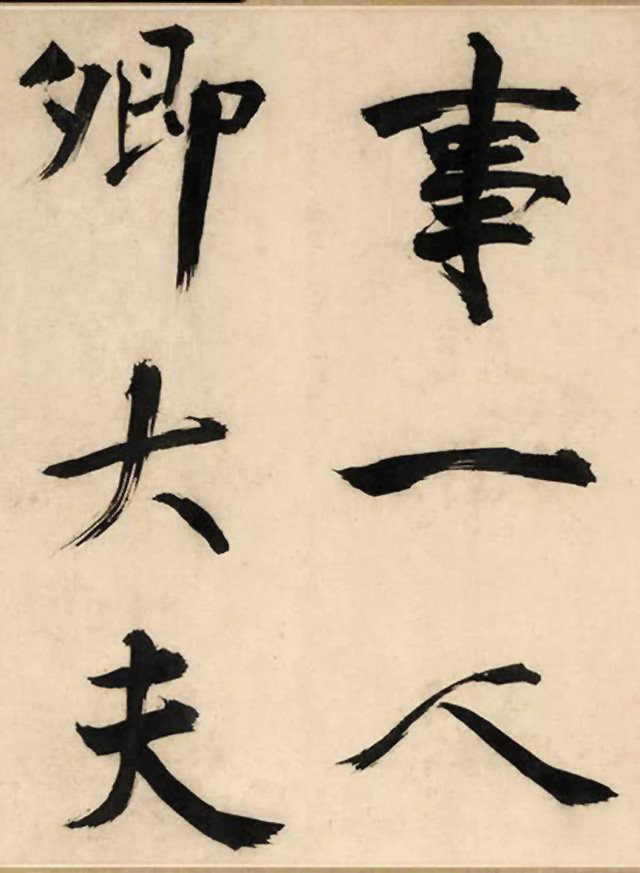 事一人
卿大夫